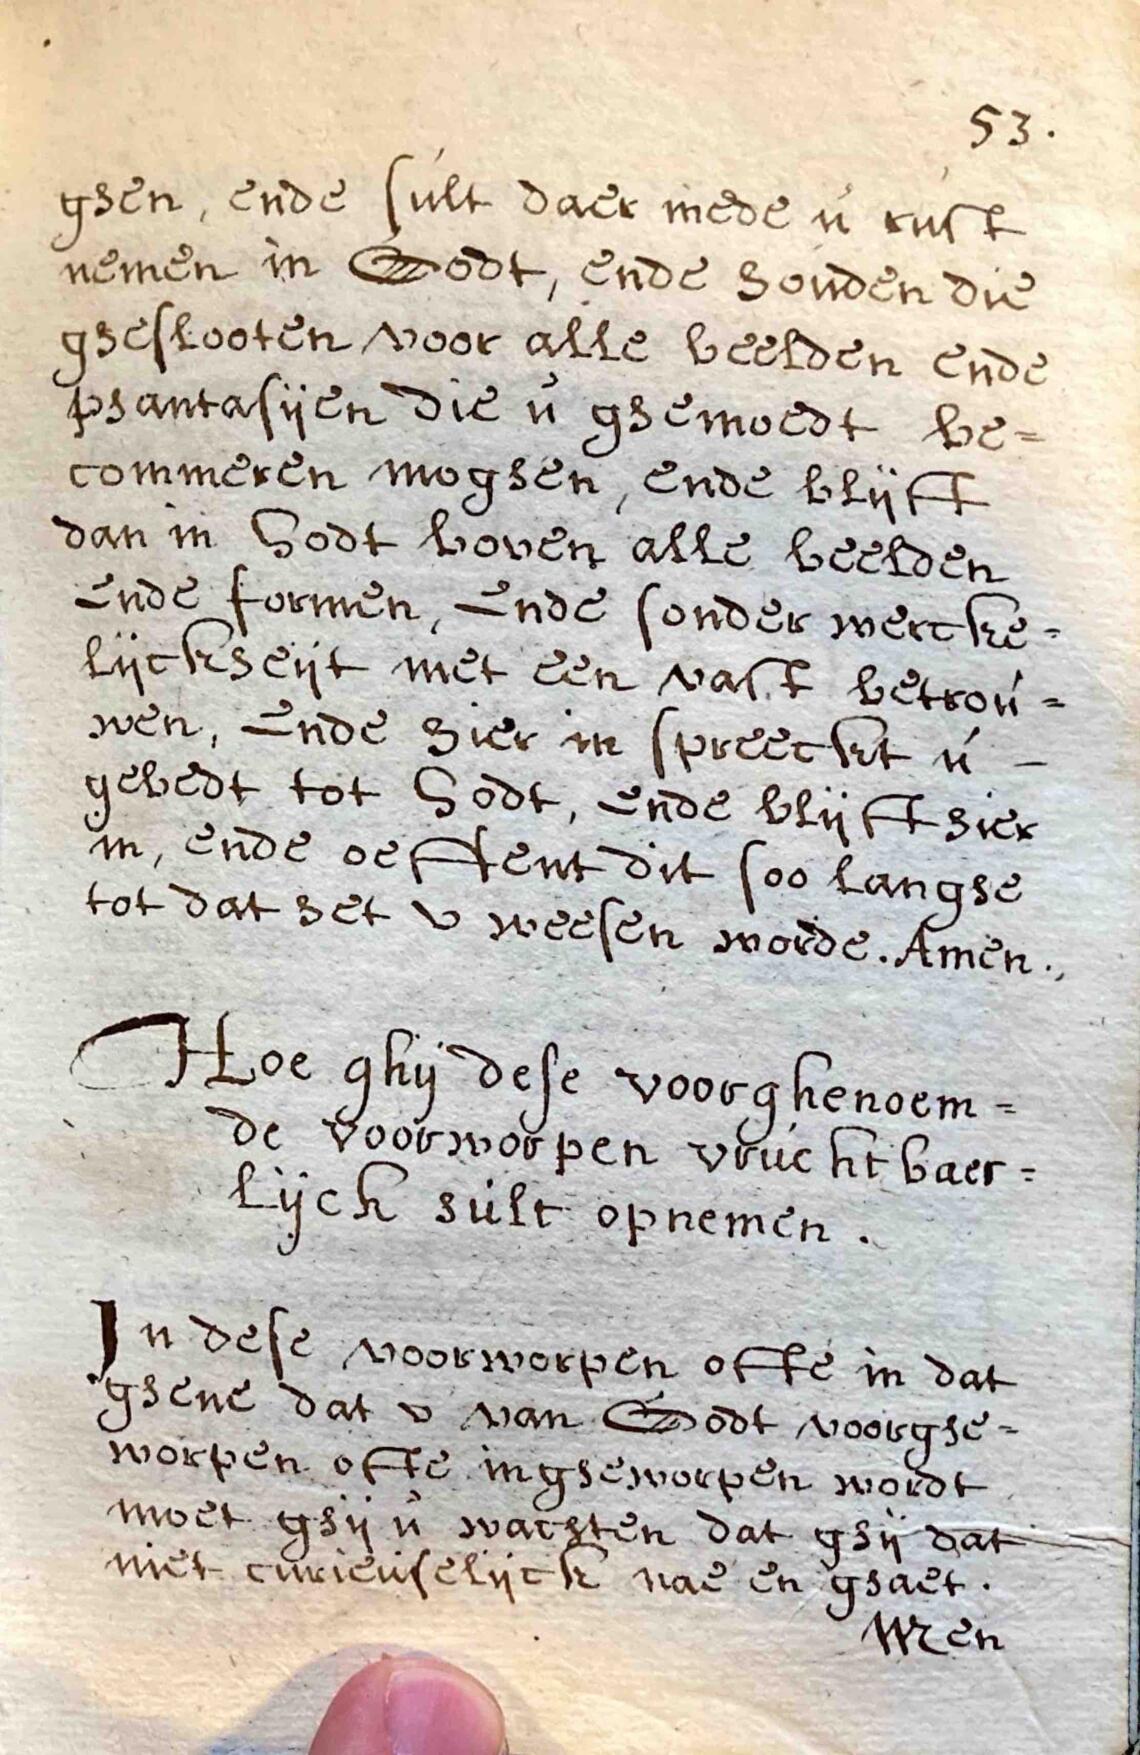 53.
ghen, ende sult daer mede u rust
nemen in Godt, ende houden die
gheslooten voor alle beelden ende
phantasijen die u ghemoedt be=
commeren moghen, ende blijft
dan in Godt boven alle beelden
Ende formen, Ende sonder wercke=
lijckheijt met een vast betrou=
wen, Ende hier in spreeckt u –
gebedt tot Godt, Ende blijft hier
in, ende oeffent dit soo langhe
tot dat het v weesen worde. Amen.
Hoe ghij dese voorghenoem=
de voorworpen vruchtbaer=
lijck sult opnemen.
In dese voorworpen ofte in dat
ghene dat v van Godt voorghe=
worpen ofte ingheworpen wordt
moet ghij u wachten dat ghij dat
niet curieuselijck nae en ghaet.
Men